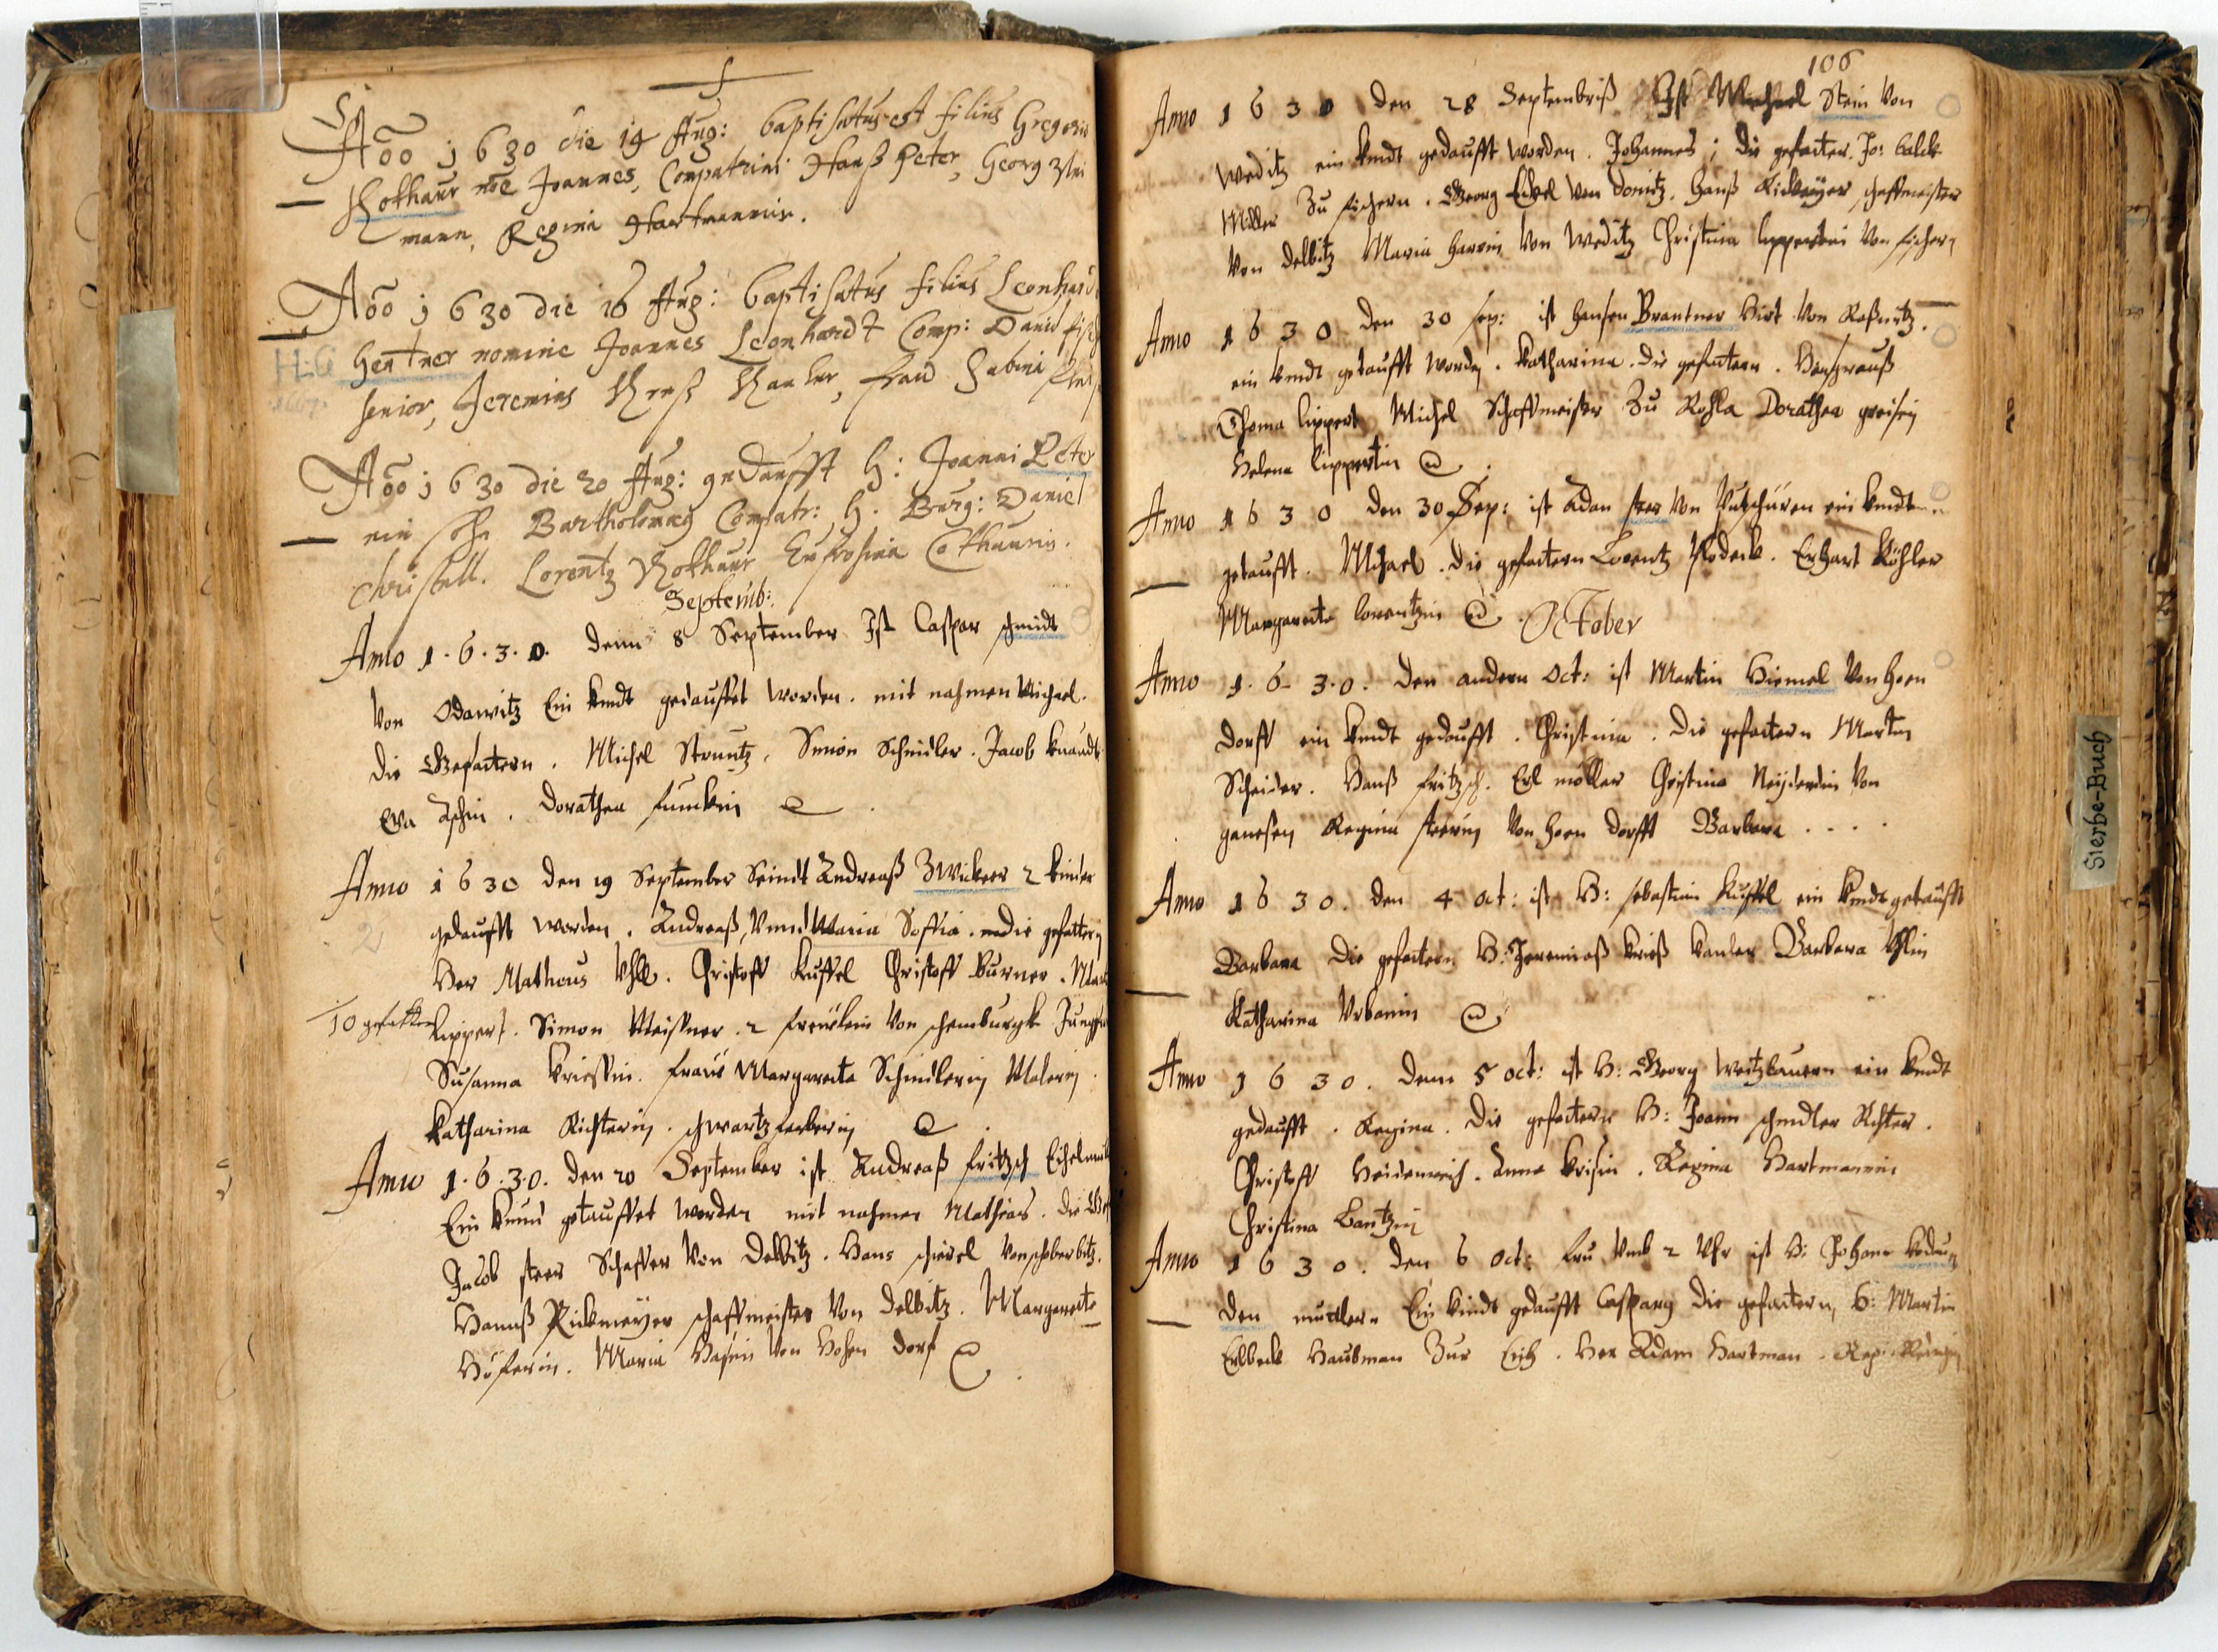 Aõo j630 die 19 Aug: baptisatus est filius Gregorii
Kothaur nõe Joannes, Compatrini Hanß Peter, Georg
mann, Regina Hartmannin.
Aõo j630 die 16 Aug: baptisatus filius Leonhard
HLG
Hentner nomine Joannes Leonhardt Comp: Daniel
senior, Jeremias Kreß Kantzler, Frau Sabina
Aõo j630 die 20 Aug: gedaufft H: Joanni Peter
ein sohn Bartholomaeg Compatr: H. Burg: Daniel
Christall. Lorentz Kothaur Eufrosina Cothaurin.
Septemb:
Anno 1.6.3.0. denn 8 September Ist Caspar schmidt
Von Odawitz Ein kindt gedauffet worden. mit nahmen Michael.
die Gefattern. Michel Struntz. Simon Schindler. Jacob
Eva . Dorathea funckin
Anno 1630 den 19 September Seindt Andreaß Zwickers 2 kinder
2
gedaufft worden. Andreaß, Vnnd Maria Soffia. die gefattern
Her Matheus Uhl. Christoff Kuffel Christoff Burner.
10 gefattern
Lippert. Simon Meixner. 2 freülein Von schenburgk Jungfr
Susanna kriessin. frauw Margareta Schindlerin Malerin.
katharina Richterin. schwartzferberin
Anno 1.6.3.0. den 20 September ist Andreaß fritzsch
Ein kind getauffet worden mit nahmen Mathias. die Gef
Jacob Schaffer Von Delbitz. Hans
Hannß Rickmeÿer schaffmeister Von delbitz. Margareta
Höferin. Maria Von Hohen dorf
106
Anno 1630 den 28 Septembriß Ist Michael Stein Von
Weditz ein kindt gedaufft worden. Johannes; die gefatter. Jo: balck
Müller Zu fischern. Georg Von donitz. hanß Rickmeÿer schaffmeister
Von delbitz Maria Von Weditz Christina lippertin Von fischern
Anno 1630 den 30 sep: ist hansen Brantner hirt Von Roßnitz.
ein kindt getaufft worden. Katharina. die gefattern.
Thoma lippert Michel Schaffmeister Zu Rohla Dorathea
Helena lippertin
Anno 1630 den 30 Sep: ist Adan Von Putschüren ein kindt
getaufft. Michael. die gefattern Lorentz . Erhart Köhler
Margareta lorentzin . October
Anno 1.6.3.0. den andern Oct: ist Martin Himel Von hoen
dorff ein kindt gedaufft. Christina. die gefattern Martin
Scheider. Hanß fritzsch. Erl möller Christina Von
Regina Von hoen dorfft Barbara ....
Anno 1630. den 4 oct: ist H: sebastian Kuffel ein kindt getaufft
Barbara die gefattern H: Jeremiaß kriß kantzler Barbara
Katharina Urbanin
Anno 1630. denn 5 oct: ist H: Georg Weitzbauern ein kindt
gedaufft. Regina. Die gefattern H: Joann schindler Richter.
Christoff Heidenreich. Anna krisin. Regina Hartmannin
Christina Lantzin
Anno 1630. den 6 oct: fru Vmb 2 Vhr ist H: Johann
den mittlern Ein kindt gedaufft Caspary die gefattern, H: Martin
Erlbeck Haubman Zur . Her Adam Hartman.
Sterbe-Buch